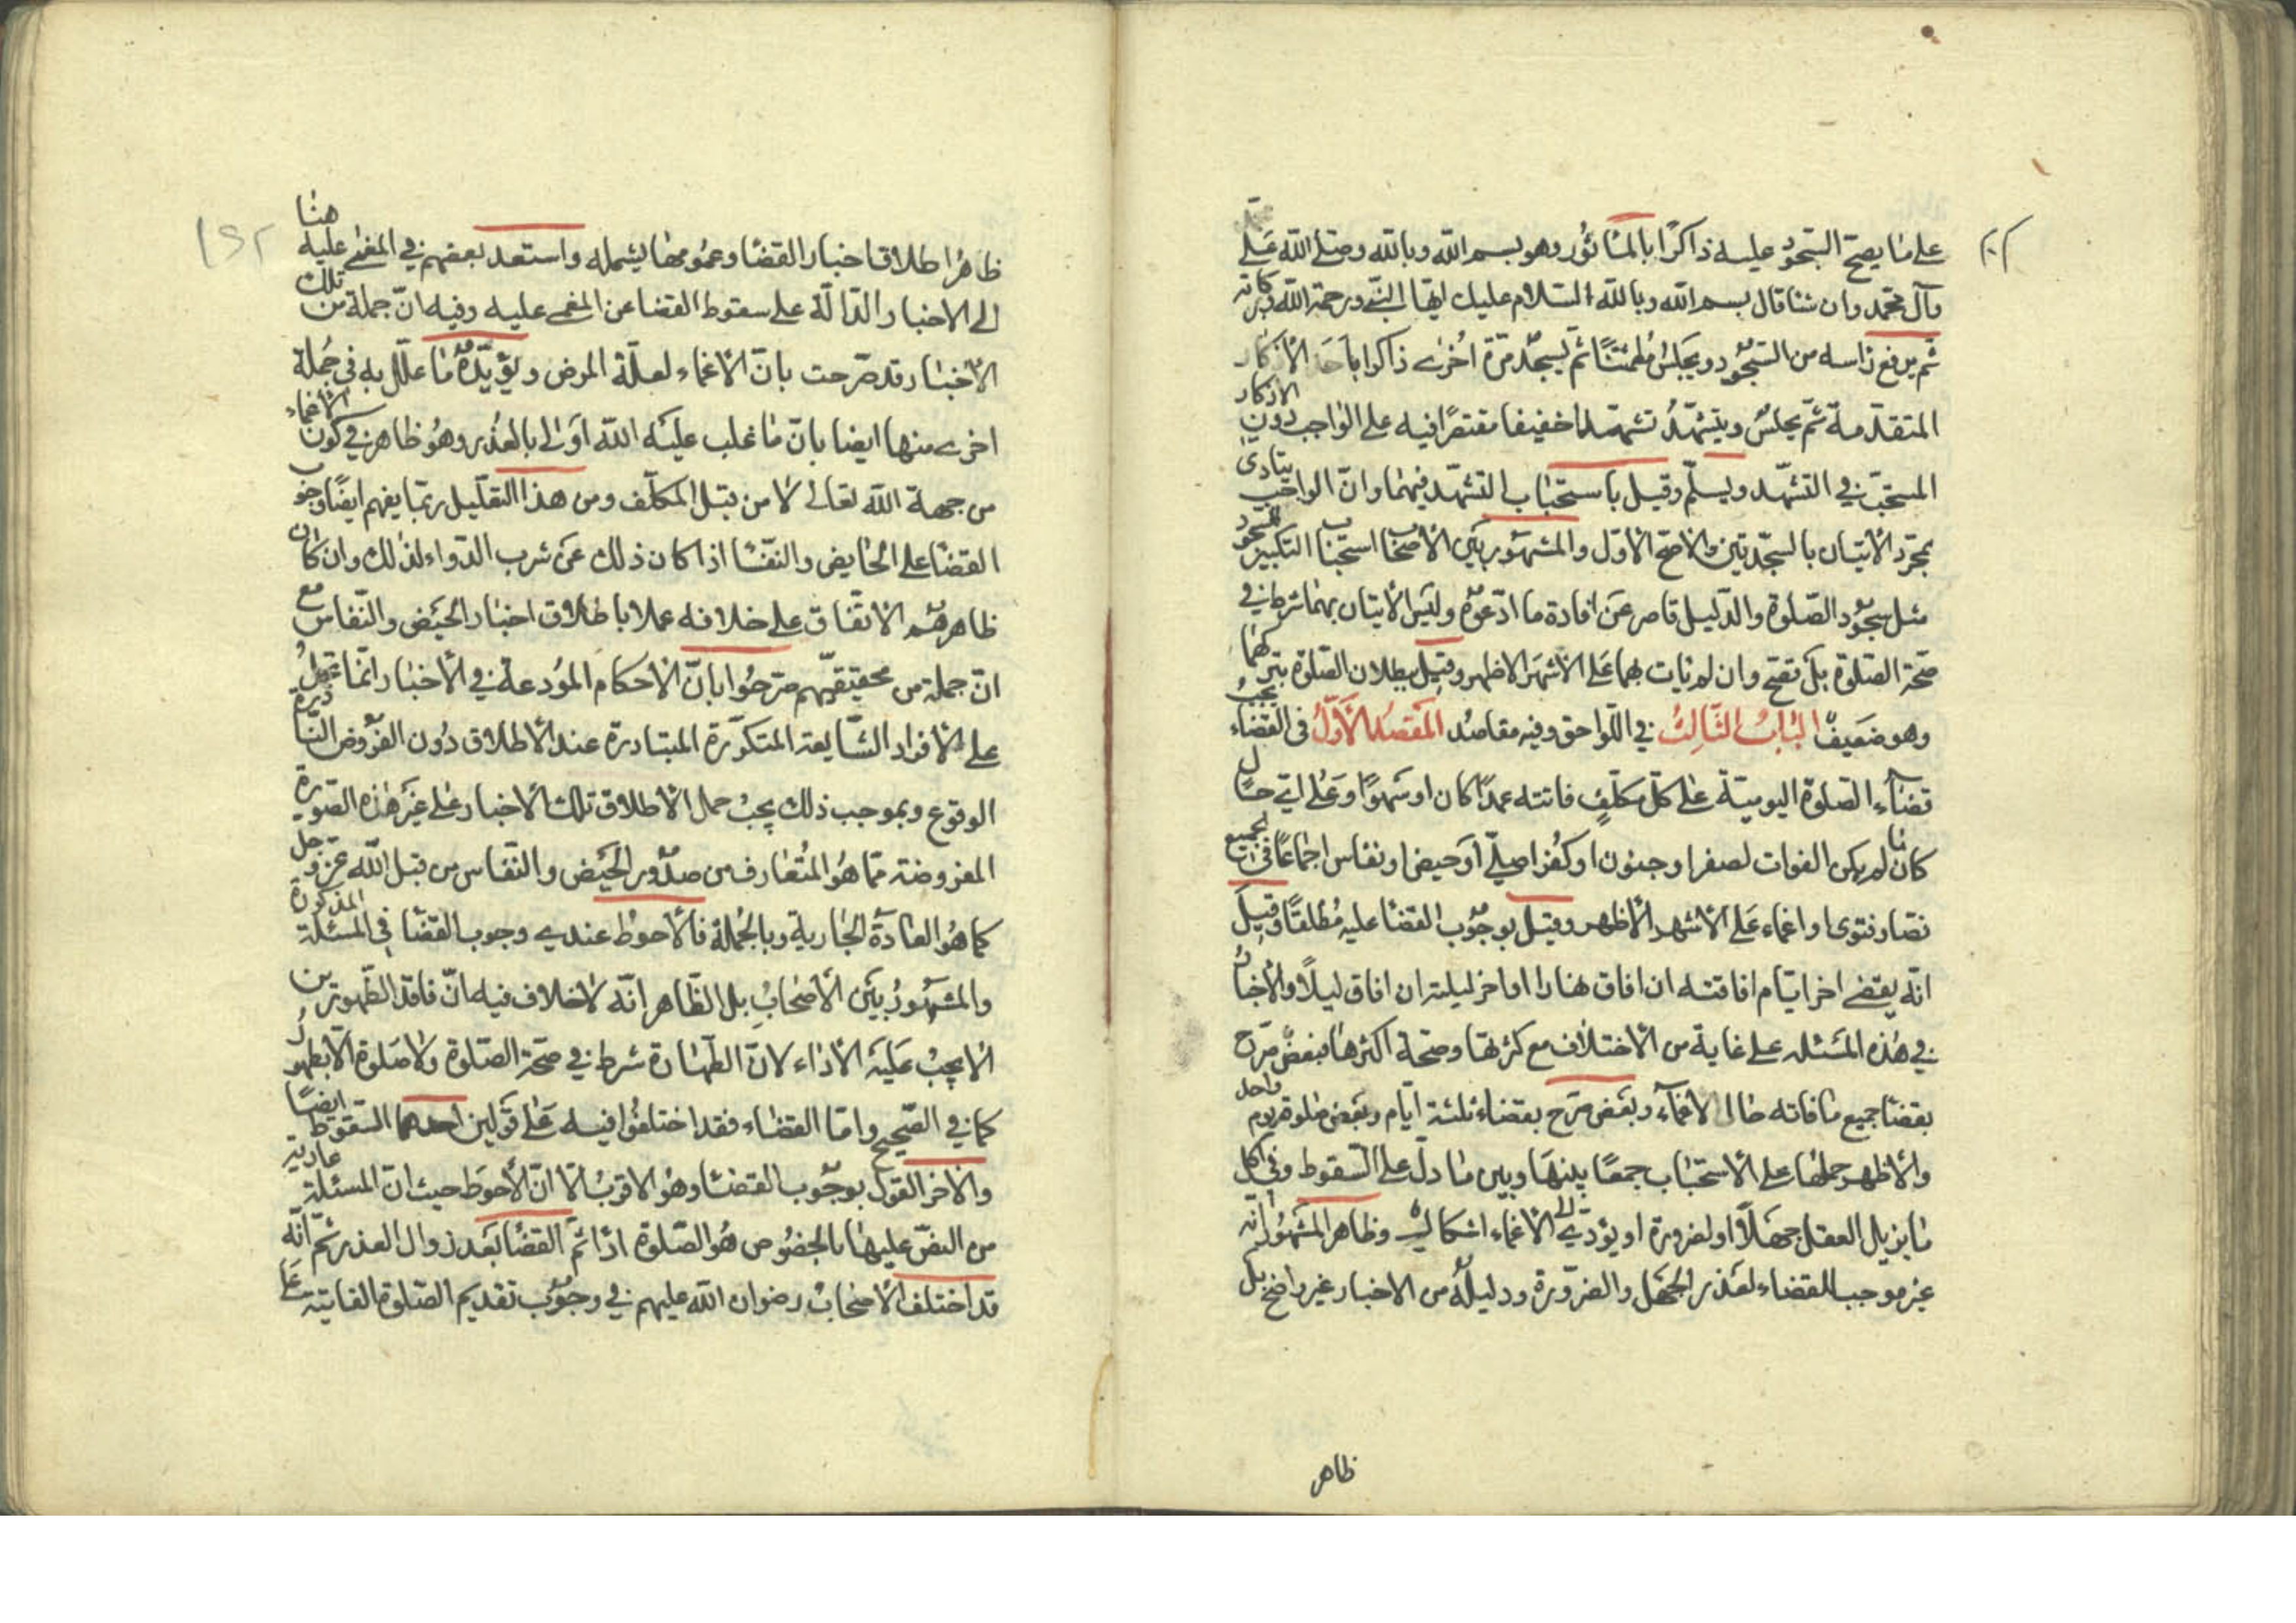 على ما يصح السجود عليه ذاكرا بالمأثور وهو بسم الله وبالله وصلى الله على محمد
وآل محمد وان شا قال بسم الله وبالله السلام عليك ايها النبى ورحمة الله وبركاته
ثم يرفع راسه من السجود ويجلس مطمئنا ثم يسجد مرة اخرى ذاكرا باحد الاذكار
المتقدمة ثم يجلس ويتشهد تشهدا خفيفا مقتصرا فيه على الواجب دون الاذكار
المستحب فى التشهد ويسلم وقيل باستحباب التشهد فيهما وان الواجب يتادى
بمجرد الاتيان بالسجدتين والاصح الاول والمشهور بين الاصحاب استحباب التكبير للسجود
مثل سجود الصلوة والدليل قاصر عن افادة ما ادعوه وليس الاتيان بهما شرط فى
صحة الصلوة بل تصح وان لم يات بهما على الاشهر الاظهر وقيل ببطلان الصلوة بتركهما
وهو ضعيف الباب الثالث فى اللواحق وفيه مقاصد المقصد الاول فى القضاء يجب
قضاء الصلوة اليومية على كل مكلف فاتته عمدا كان او سهوا وعلى اى حال
كان ما لم يكن الفوات لصغر او جنون او كفر اصلى او حيض او نفاس اجماعا فى الجميع
نصا وفتوى او اغماء على الاشهر الاظهر وقيل بوجوب القضا عليه مطلقا وقيل
انه يقضى اخر ايام افاقته ان افاق نهارا او اخر ليلته ان افاق ليلا والاخبار
فى هذه المسئله على غاية من الاختلاف مع كثرتها وصحة اكثرها فبعض صرح
بقضا جميع ما فاته حال الاغماء وبعض صرح بقضاء ثلثة ايام وبعض صلوة يوم واحد
والاظهر حملها على الاستحباب جمعا بينها وبين ما دل على السقوط وفى اكل
ما يزيل العقل جهلا او لضرورة او يؤدى الى الاغماء اشكال وظاهر المشهور انه
غير موجب للقضاء لعذر الجهل والضرورة ودليله من الاخبار غير واضح بل
ظاهر
ظاهر اطلاق اخبار القضا وعمومها يشمله واستعد بعضهم فى المغمى عليه هنا
الى الاخبار الدالة على سقوط القضا عن المغمى عليه وفيه ان جملة من تلك
الاخبار قد صرحت بان الاغماء لعلة المرض ويؤيده ما علل به فى جملة
اخرى منها ايضا بان ما غلب عليه الله اولى بالعذر وهو ظاهر فى كون الاغماء
من جهة الله تعالى لا من قبل المكلف ومن هذا التعليل ربما يفهم ايضا وجوب
القضا على الحايض والنفسا اذا كان ذلك عن شرب الدواء لذلك وان كان
ظاهرهم الاتفاق على خلافه عملا باطلاق اخبار الحيض والنفاس مع
ان جملة من محققيهم صرحوا بان الاحكام المودعة فى الاخبار انما تحمل
على الافراد الشايعة المتكررة المتبادرة عند الاطلاق دون الفروض النادرة
الوقوع وبموجب ذلك يجب حمل الاطلاق تلك الاخبار على غير هذه الصورة
المفروضة مما هو المتعارف من صدور الحيض والنفاس من قبل الله عز وجل
كما هو العادة الجارية وبالجملة فالاحوط عندى وجوب القضا فى المسئلة المذكورة
والمشهور بين الاصحاب بل الظاهر انه لا خلاف فيه ان فاقد الطهورين
لا يجب عليه الاداء لان الطهارة شرط فى صحة الصلوة ولا صلوة الا بطهور
كما فى الصحيح واما القضاء فقد اختلفوا فيه على قولين احدهما السقوط ايضا
والاخر القول بوجوب القضا وهو الاقرب الا ان الاحوط حيث ان المسئلة عارية
من النص عليها بالخصوص هو الصلوة اداء ثم القضا بعد زوال العذر ثم انه
قد اختلف الاصحاب رضوان الله عليهم فى وجوب تقديم الصلوة الفايتة على